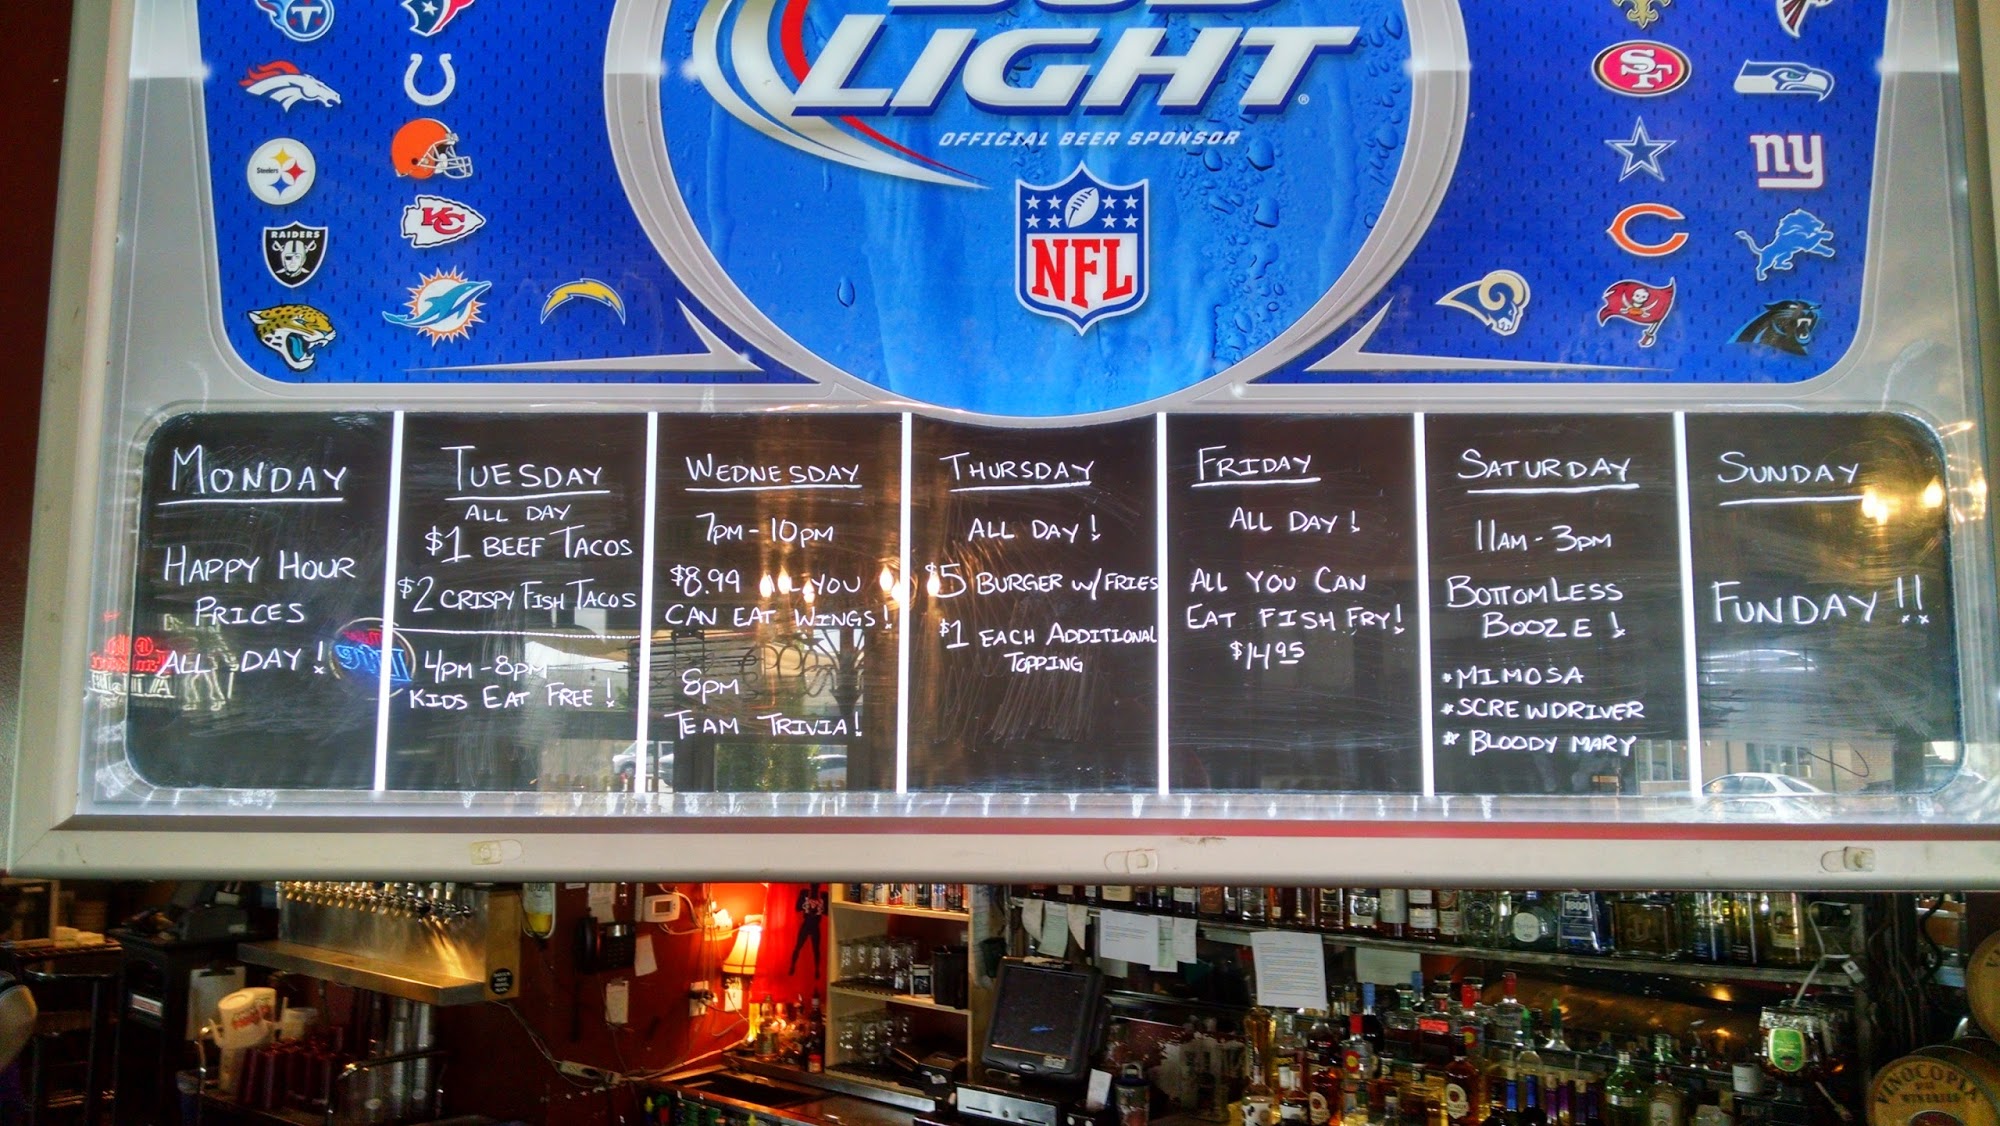 LIGHT
OFFICIAL BEER SPONSOR
NFL
Steelers
RAIDERS
KC
SF
ny
MONDAY
HAPPY HOUR
PRICES
ALL DAY!
TUESDAY
ALL DAY
$1 BEEF TACOS
$2 CRISPY FISH TACOS
4PM-8PM
KIDS EAT FREE!
WEDNESDAY
7PM-10PM
$8.99 ALL YOU
CAN EAT WINGS!
8PM
TEAM TRIVIA!
THURSDAY
ALL DAY!
$5 BURGER W/FRIES
$1 EACH ADDITIONAL
TOPPING
FRIDAY
ALL DAY!
ALL YOU CAN
EAT FISH FRY!
$14.95
SATURDAY
11AM-3PM
BOTTOMLESS
BOOZE!
*MIMOSA
*SCREWDRIVER
*BLOODY MARY
SUNDAY
FUNDAY!!
VINOCOPIA
WINERIES
1800